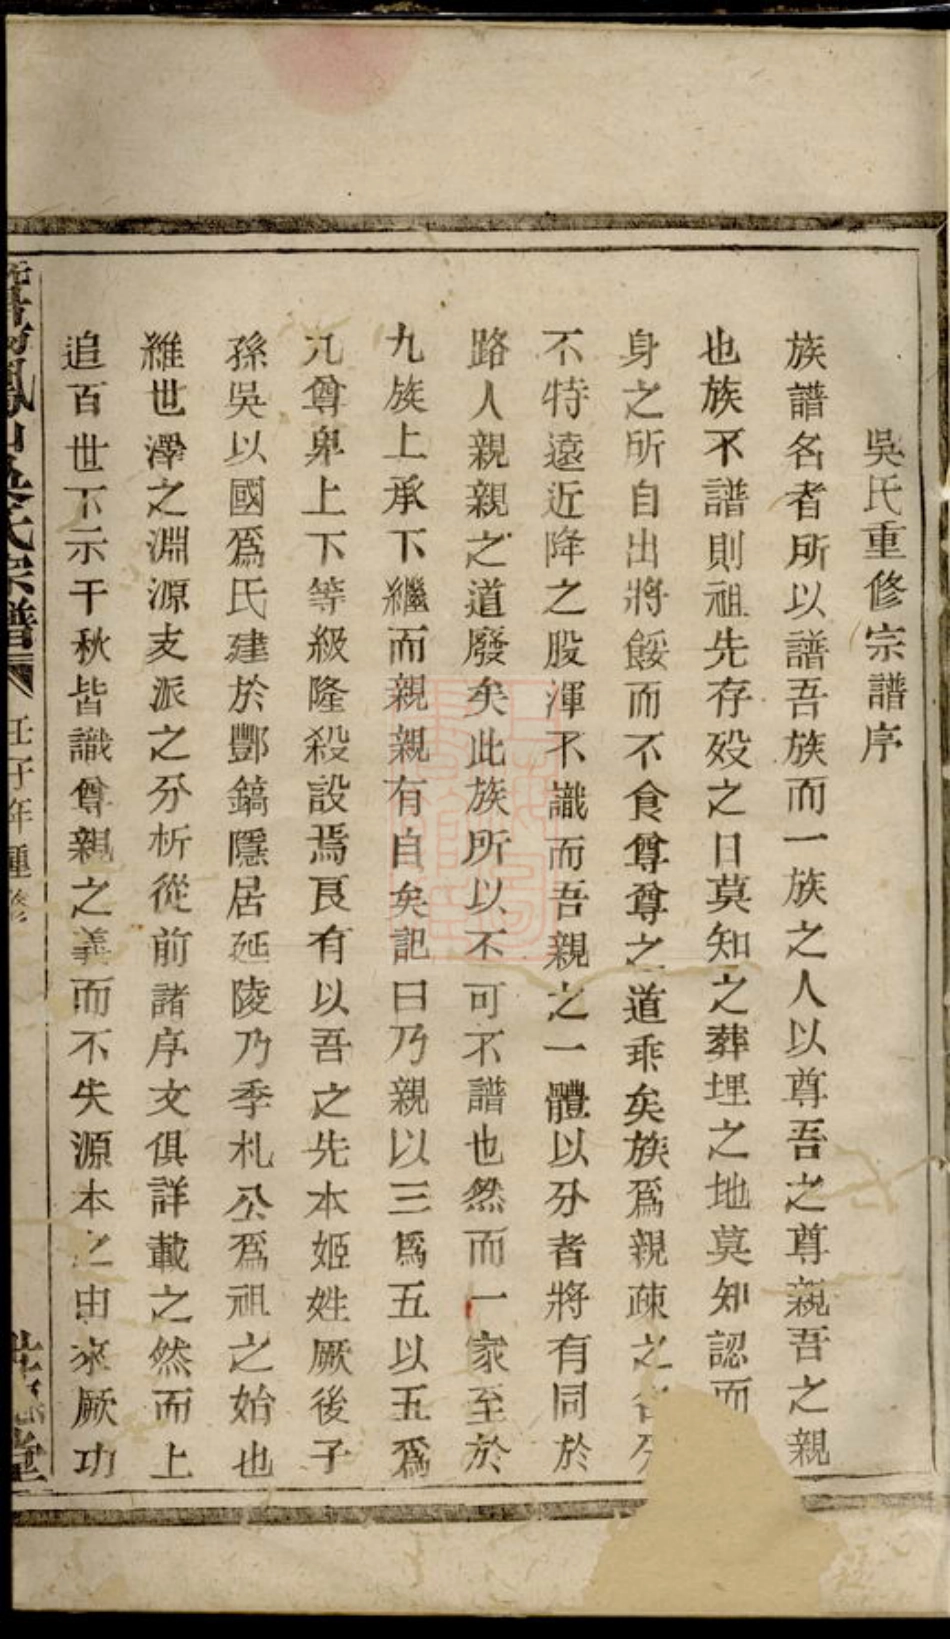 吳氏重修宗譜序
族譜名者所以譜吾族而一族之人以尊吾之尊親吾之親
也族不譜則祖先存歿之日莫知之葬埋之地莫知認而
身之所自出將餒而不食尊尊之道乖矣族爲親疎之
不特遠近降之股渾不識而吾親之一體以分者將有同於
路人親親之道廢矣此族所以不可不譜也然而一家至於
九族上承下繼而親親有自矣記曰乃親以三爲五以五爲
九尊卑上下等級隆殺設焉良有以吾之先本姬姓厥後子
孫吳以國爲氏建於酆鎬隱居延陵乃季札公爲祖之始也
維世澤之淵源支派之分析從前諸序文俱詳載之然而上
追百世下示千秋皆識尊親之義而不失源本之由來厥功
鳳山吳氏宗譜
壬子年重修
堂